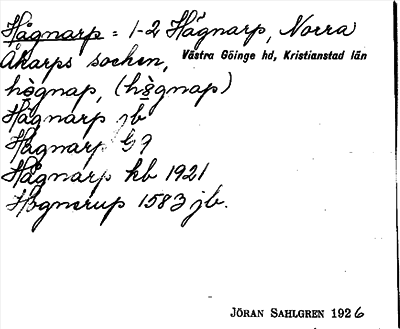 Hågnarp = 1-2 Hågnarp, Norra
Åkarps socken, Västra Göinge hd, Kristianstad län
hògnap, (hògnap)
Hågnarp jb
Hågnarp G 7
Hågnarp kb 1921
Hognerup 1583 jb.
JÖRAN SAHLGREN 1926